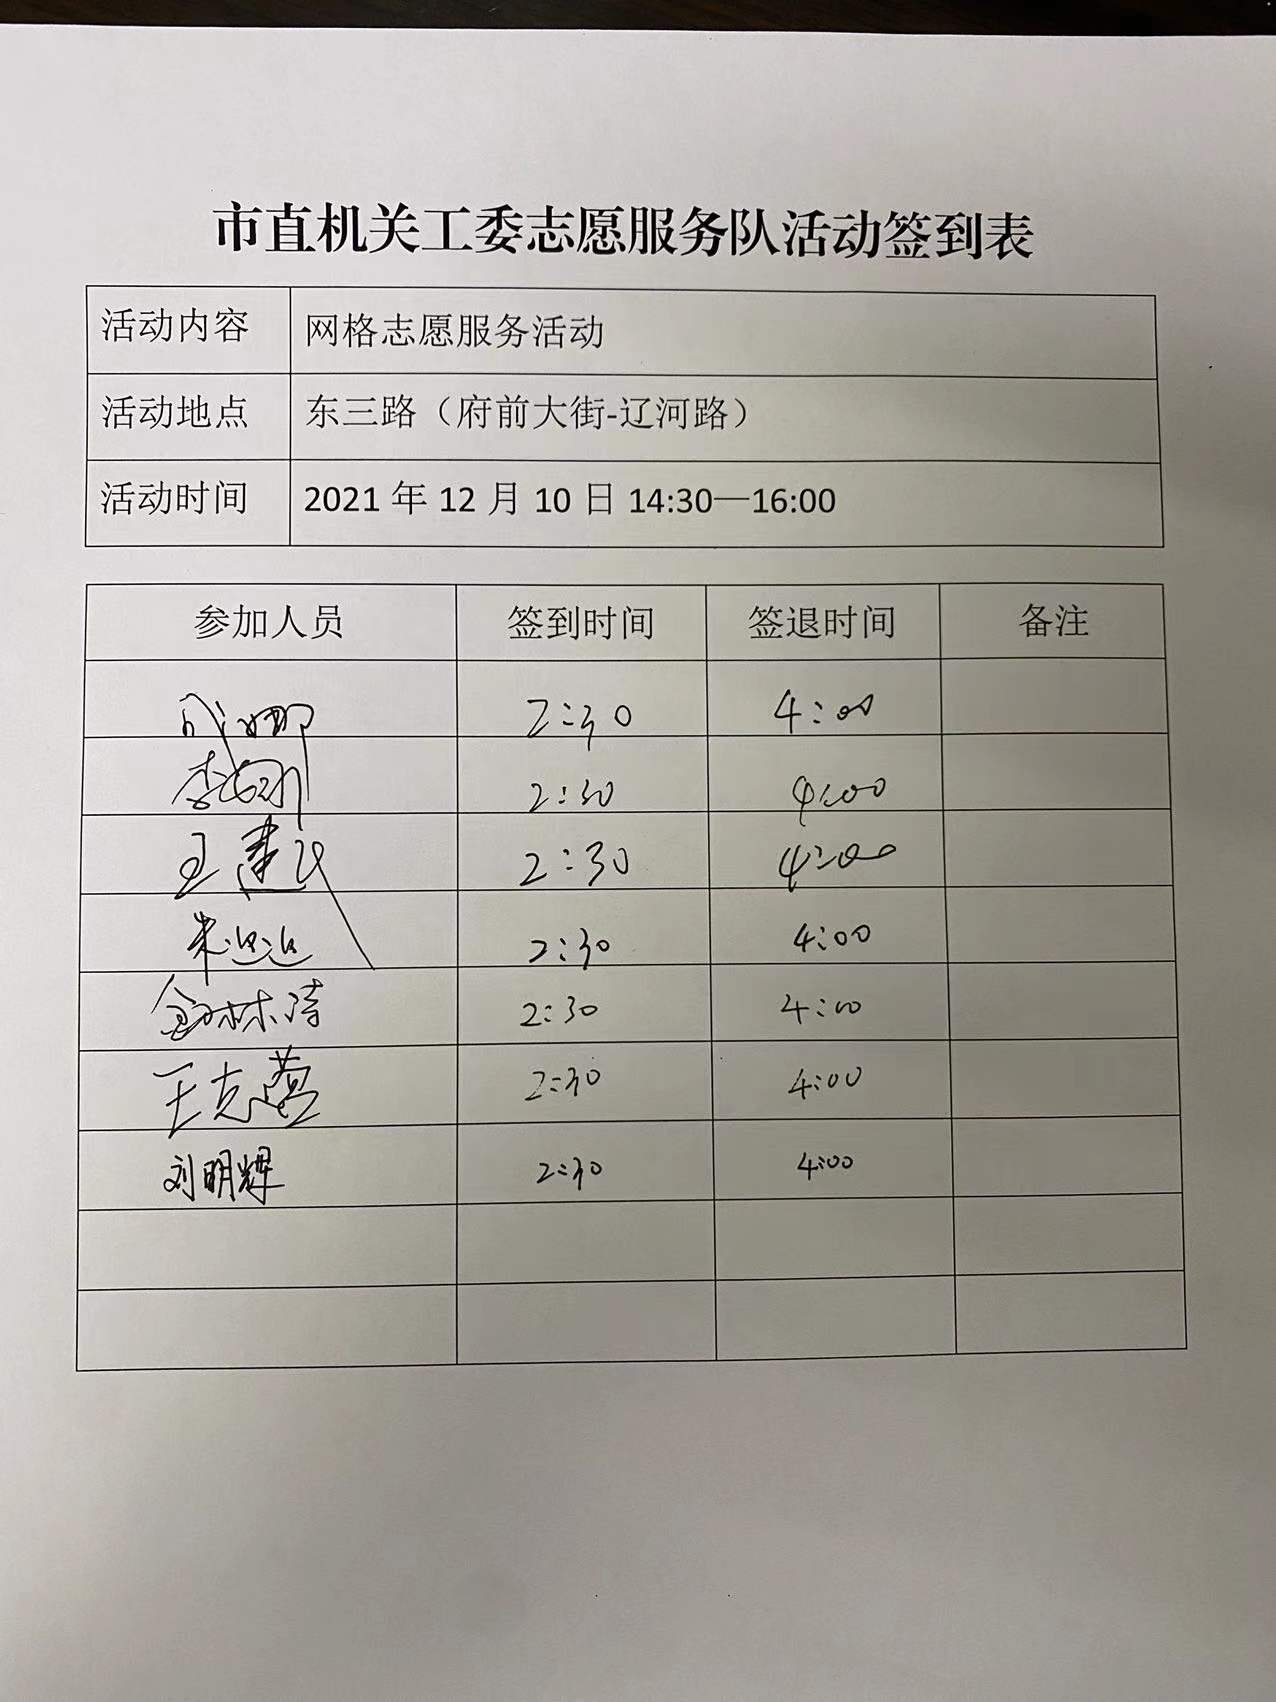 市直机关工委志愿服务队活动签到表
活动内容 网格志愿服务活动
活动地点 东三路（府前大街-辽河路）
活动时间 2021年12月10日14:30—16:00
参加人员 签到时间 签退时间 备注
2:30 4:00
李 2:30 4:00
王建民 2:30 4:00
朱迎迎 2:30 4:00
林涛 2:30 4:00
王克 2:30 4:00
刘明辉 2:30 4:00